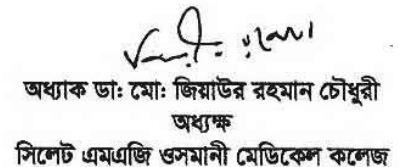 অধ্যাক ডাঃ মোঃ জিয়াউর রহমান চৌধুরী
অধ্যক্ষ
সিলেট এমএজি ওসমানী মেডিকেল কলেজ